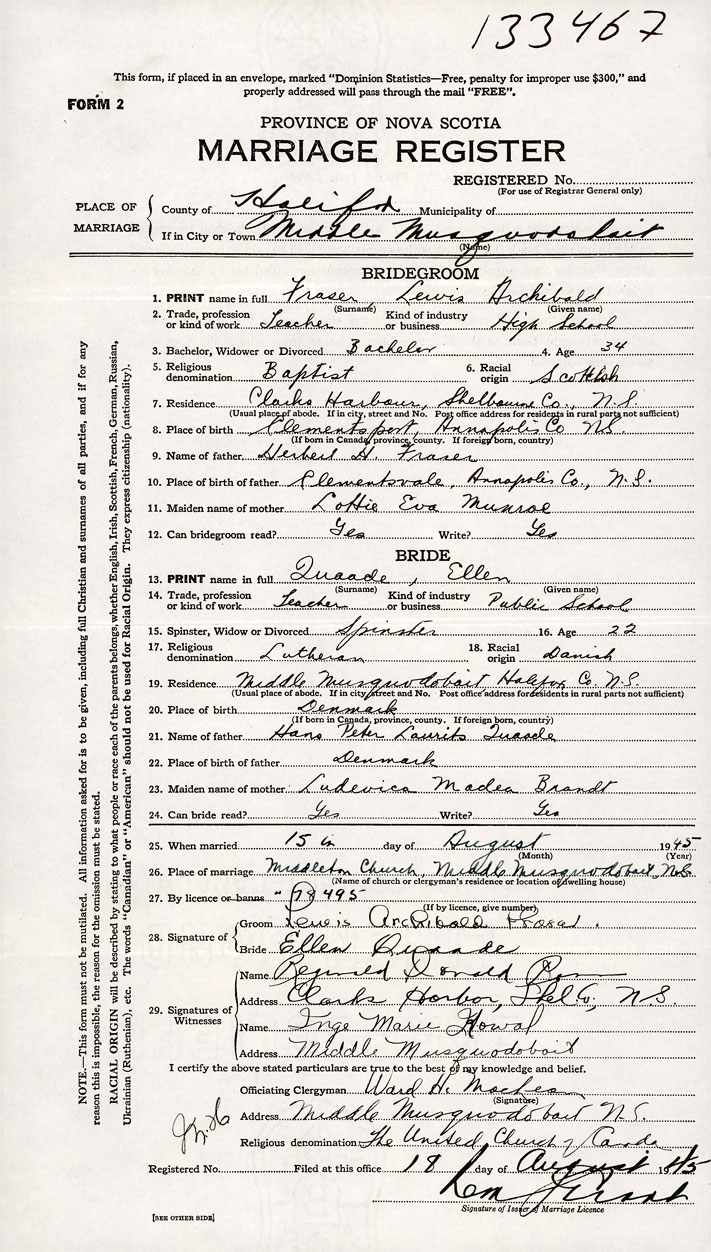 133467
This form, if placed in an envelope, marked "Dominion Statistics—Free, penalty for improper use $300," and
properly addressed will pass through the mail "FREE".
FORM 2
PROVINCE OF NOVA SCOTIA
MARRIAGE REGISTER
REGISTERED No.
(For use of Registrar General only)
PLACE OF MARRIAGE
County of Halifax Municipality of
If in City or Town Middle Musquodoboit
(Name)
BRIDEGROOM
1. PRINT name in full Fraser, Lewis Archibald
(Surname) (Given name)
2. Trade, profession or kind of work Teacher Kind of industry or business High School
3. Bachelor, Widower or Divorced Bachelor 4. Age 34
5. Religious denomination Baptist 6. Racial origin Scottish
7. Residence Clarks Harbour, Shelbourne Co., N.S.
(Usual place of abode. If in city, street and No. Post office address for residents in rural parts not sufficient)
8. Place of birth Clementsport, Annapolis Co NS.
(If born in Canada, province, county. If foreign born, country)
9. Name of father Herbert H. Fraser
10. Place of birth of father Clementsvale, Annapolis Co., N.S.
11. Maiden name of mother Lottie Eva Munroe
12. Can bridegroom read? Yes Write? Yes
BRIDE
13. PRINT name in full Quaade, Ellen
(Surname) (Given name)
14. Trade, profession or kind of work Teacher Kind of industry or business Public School
15. Spinster, Widow or Divorced Spinster 16. Age 22
17. Religious denomination Lutheran 18. Racial origin Danish
19. Residence Middle Musquodoboit, Halifax Co. N.S.
(Usual place of abode. If in city, street and No. Post office address for residents in rural parts not sufficient)
20. Place of birth Denmark
(If born in Canada, province, county. If foreign born, country)
21. Name of father Hans Peter Laurits Quaade
22. Place of birth of father Denmark
23. Maiden name of mother Ludevica Madea Brandt
24. Can bride read? Yes Write? Yes
25. When married 15 day of August 1945
(Month) (Year)
26. Place of marriage Middleton Church, Middle Musquodoboit, N.S.
(Name of church or clergyman's residence or location of dwelling house)
27. By licence or banns " 78495
(If by licence, give number)
28. Signature of
Groom Lewis Archibald Fraser.
Bride Ellen Quaade
29. Signatures of Witnesses
Name Reginald Donald
Address Clarks Harbor, Shel Co., N.S.
Name Inge Marie
Address Middle Musquodoboit
I certify the above stated particulars are true to the best of my knowledge and belief.
Officiating Clergyman Ward H.
(Signature)
Address Middle Musquodoboit N.S.
Religious denomination The United Church of Canada
Registered No. Filed at this office 18 day of August 1945
Signature of Issuer of Marriage Licence
[SEE OTHER SIDE]
NOTE.—This form must not be mutilated. All information asked for is to be given, including full Christian and surnames of all parties, and if for any
reason this is impossible, the reason for the omission must be stated.
RACIAL ORIGIN will be described by stating to what people or race each of the parents belongs, whether English, Irish, Scottish, French, German, Russian,
Ukrainian (Ruthenian), etc. The words "Canadian" or "American" should not be used for Racial Origin. They express citizenship (nationality).